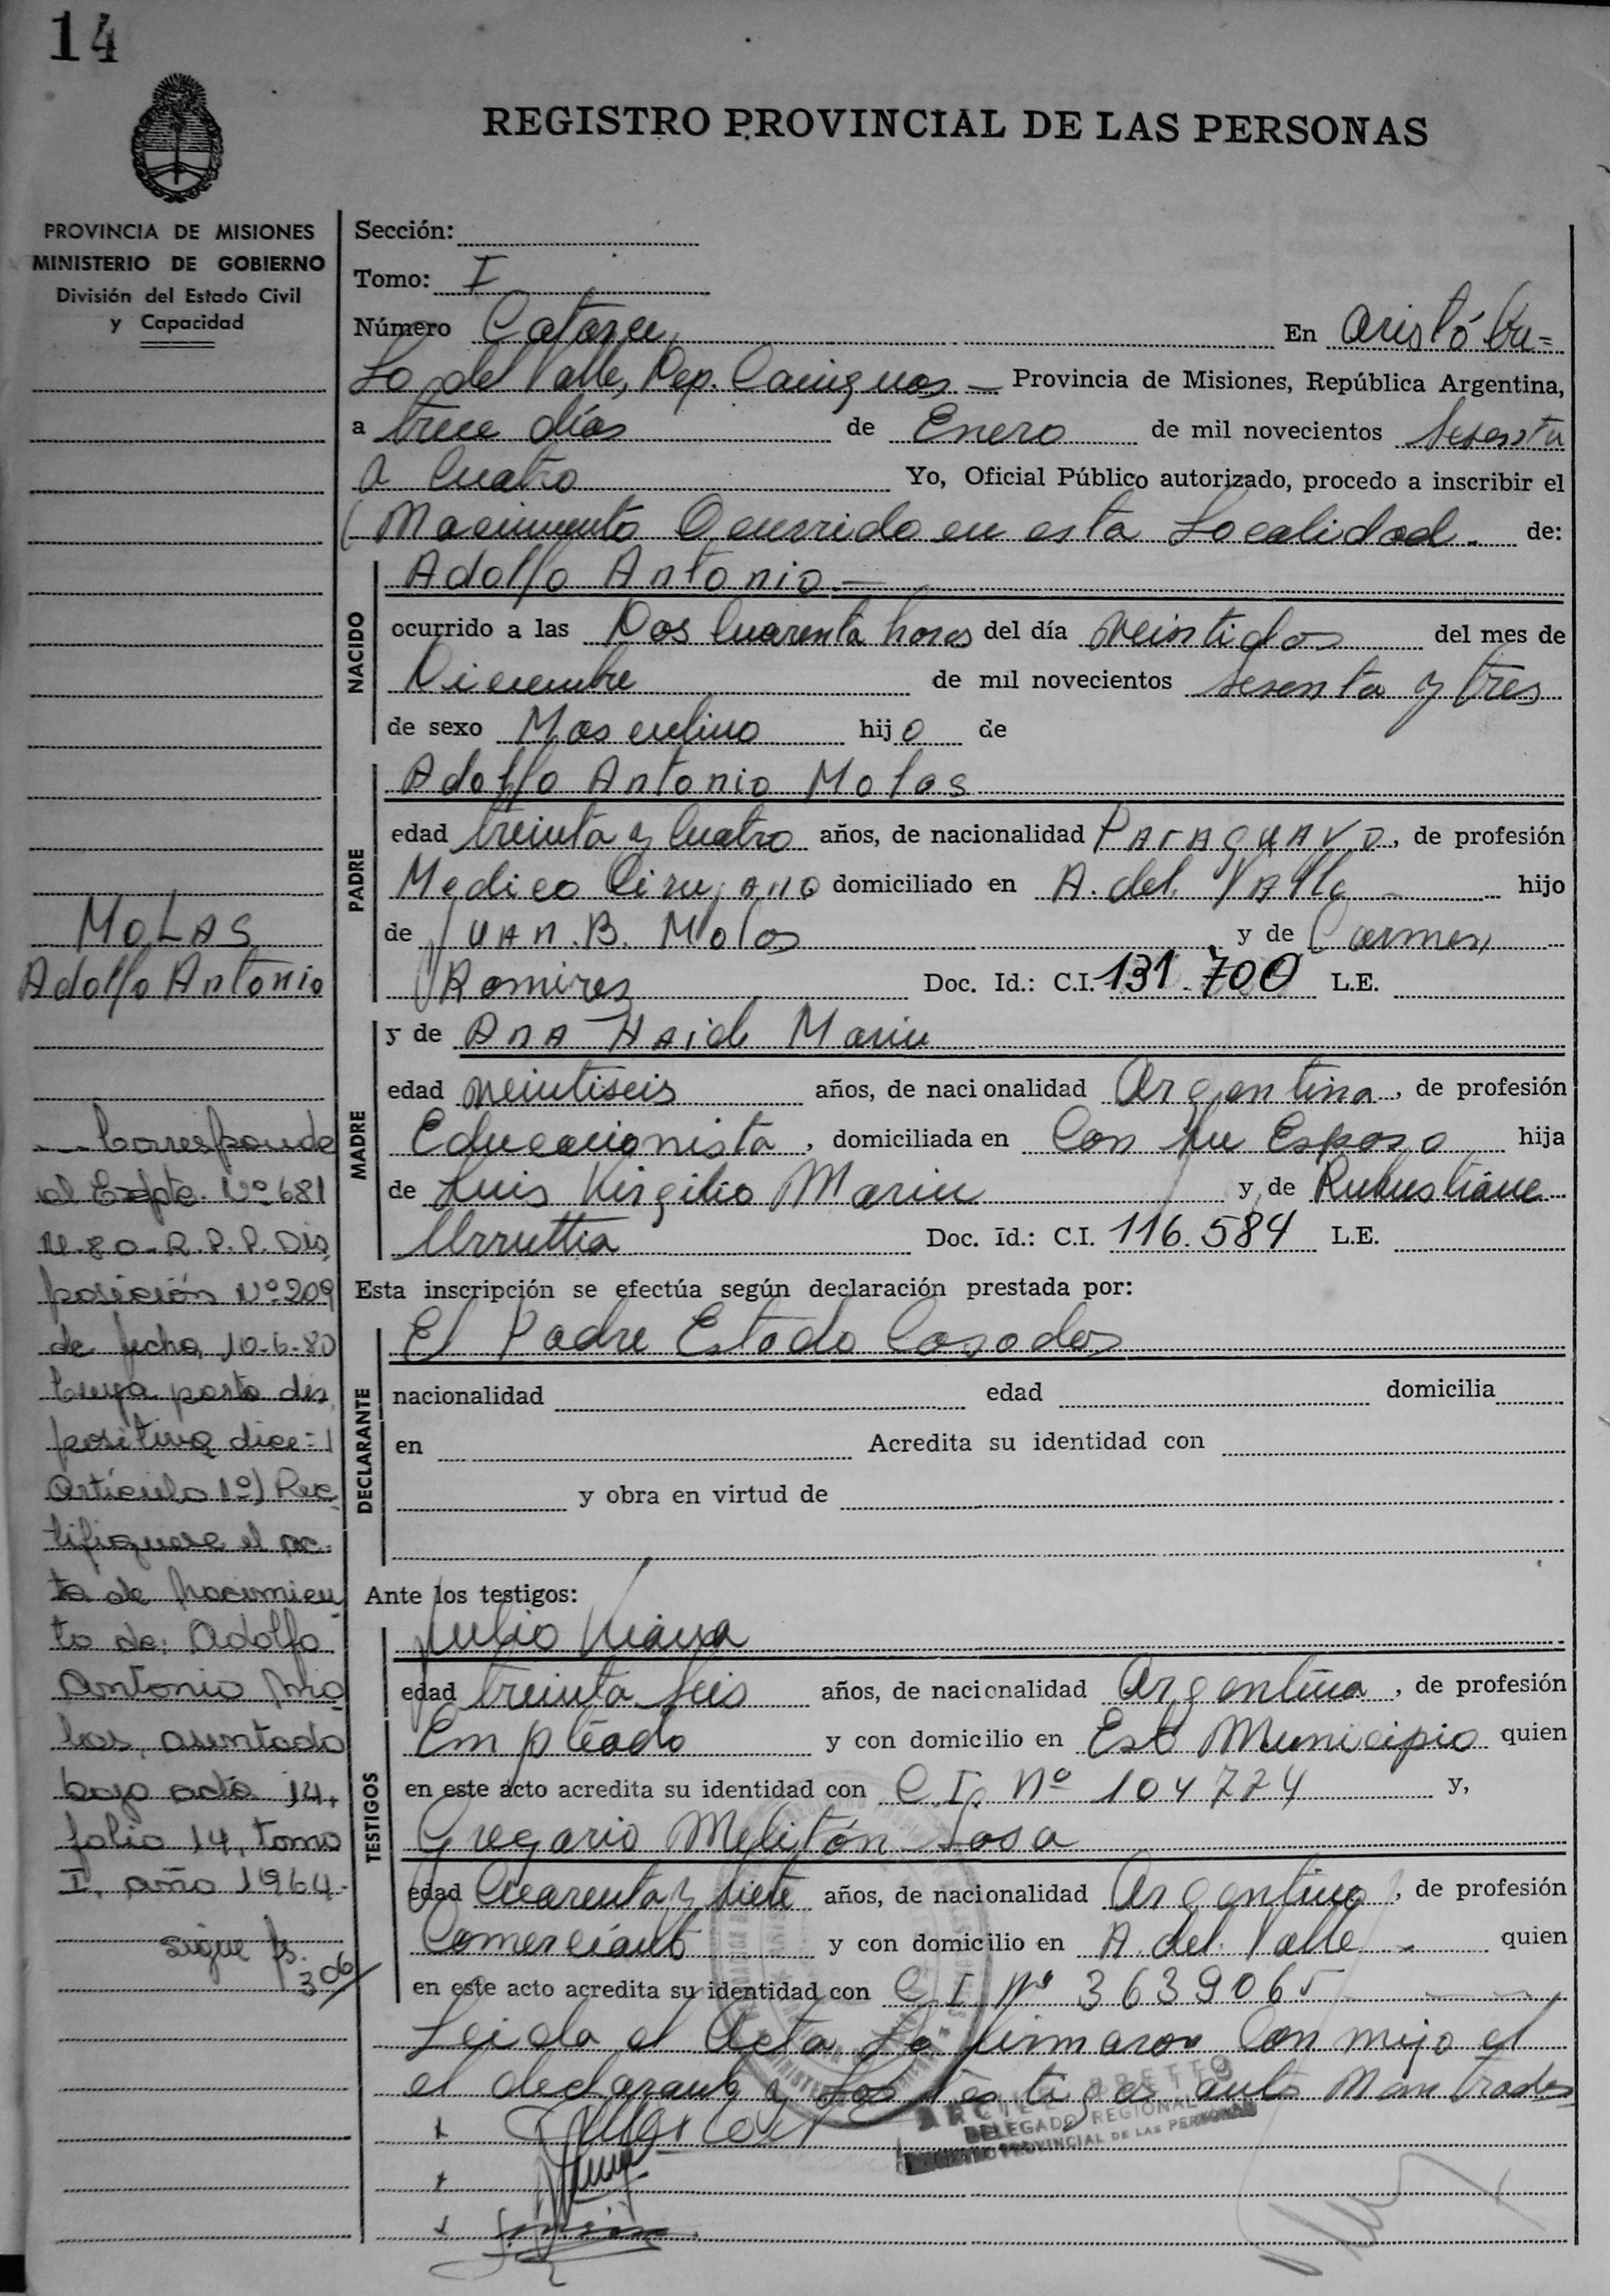 14
REGISTRO PROVINCIAL DE LAS PERSONAS
PROVINCIA DE MISIONES
MINISTERIO DE GOBIERNO
División del Estado Civil
y Capacidad
Sección:
Tomo: I
Número Catorce En Aristóbu=
lo del Valle, Dep. Cainguas — Provincia de Misiones, República Argentina,
a trece días de Enero de mil novecientos Sesenta
Cuatro Yo, Oficial Público autorizado, procedo a inscribir el
Nacimiento Ocurrido en esta Localidad. de:
NACIDO
Adolfo Antonio.—
ocurrido a las Dos Cuarenta horas del día Veintidos del mes de
Diciembre de mil novecientos Sesenta y tres
de sexo Masculino hijo de
PADRE
Adolfo Antonio Molas
edad treinta y Cuatro años, de nacionalidad PArAgUAYO, de profesión
Medico CirujAno domiciliado en A. del VAlle - hijo
de JUAn. B. Molas y de Carmen
Ramirez Doc. Id.: C.I. 131.700 L.E.
MADRE
y de AnA HAide Marin
edad Veintiseis años, de nacionalidad Argentina, de profesión
Educacionista, domiciliada en Con su Esposo hija
de Luis Virgilio Marin y de
Urruttia Doc. Id.: C.I. 116.584 L.E.
Esta inscripción se efectúa según declaración prestada por:
DECLARANTE
El Padre Estado Casados
nacionalidad edad domicilia
en Acredita su identidad con
y obra en virtud de
Ante los testigos:
TESTIGOS
Julio
edad treinta Seis años, de nacionalidad Argentina, de profesión
Empleado y con domicilio en Est Municipio quien
en este acto acredita su identidad con C I. Nº 104774 y,
Gregorio Melitón Sosa
edad Cuarenta y siete años, de nacionalidad Argentino, de profesión
Comerciante y con domicilio en A. del Valle - quien
en este acto acredita su identidad con C I Nº 3639065
Leida el Acta La firmaron Con migo el
el declarante y Los testigos ants
DELEGADO REGIONAL
REGISTRO PROVINCIAL DE LAS PERSONAS
MOLAS
Adolfo Antonio
Corresponde
al Expte. Nº 681
M-80-R.P.P. Dis
posición Nº 209
de fecha 10-6-80
Cuya parte dis
positiva dice:
Artículo 1º) Rec
tifiquese el ac
ta de Nacimien
to de: Adolfo
Antonio Mo
las, asentado
bajo acta 14,
folio 14, tomo
I, año 1964.
sigue fs.
306